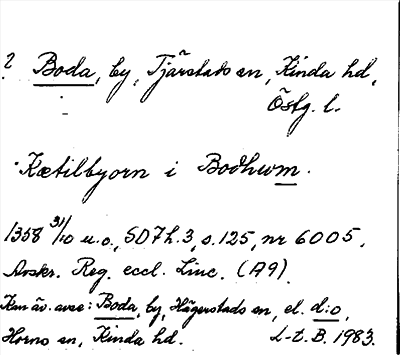 ? Boda, by, Tjärstads sn, Kinda hd,
Östg. l.
Kætilbyorn i Bodhum.
1358 31/10 u.o., SD 7 h.3, s.125, nr 6005,
Avskr. Reg. eccl. Linc. (A9).
Kan äv. avse: Boda, by, Hägerstads sn, el. d:o,
Horns sn, Kinda hd. L-t. B. 1983.